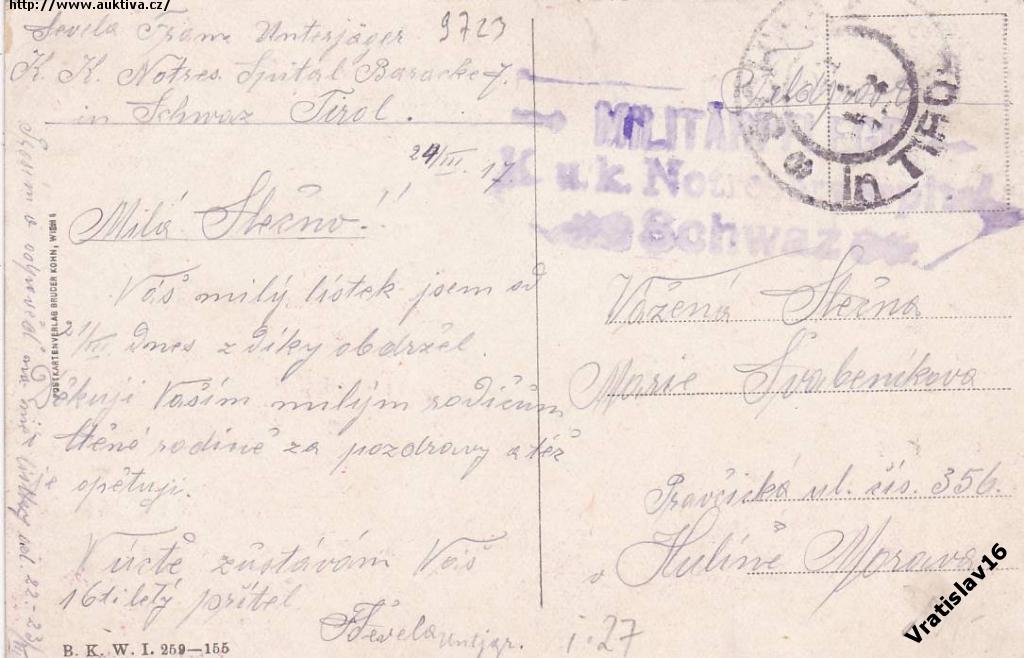 http://www.auktiva.cz/
Ševela Franz Unterjäger 9723
K. K. Notres. Spital Baracke 7.
in Schwaz Tirol.
24/III. 17
Milá Slečno!
Váš milý lístek jsem od
21/III dnes z díky obdržel.
Děkuji Vaším milým rodičům
Ctěné rodině za pozdravy a též
opětuji.
V úctě zůstávám Váš
16tiletý přítel
FŠevela Untjgr.
B. K. W. I. 259—155
POSTKARTENVERLAG BRÜDER KOHN, WIEN I
Feldpost
in TIROL
MILITÄRPFLEGE
K. u. k. Notreservespital
Schwaz
Vážená Slečna
Marie Švabeníkova
Pravčická ul. čís. 356.
v Hulíně Morava
i. 27
Vratislav16